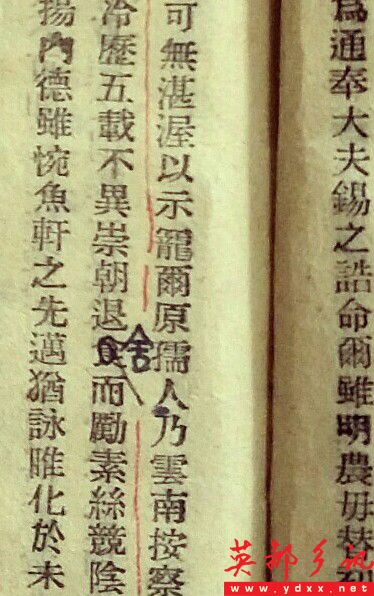 爲通奉大夫錫之誥命爾雖明農毋替
可無湛渥以示寵爾原孺人乃雲南按察
舍
冷歷五載不異崇朝退食而勵素絲競陰
揚內德雖惋魚軒之先邁猶詠雎化於未
英都乡讯
www.ydxx.net